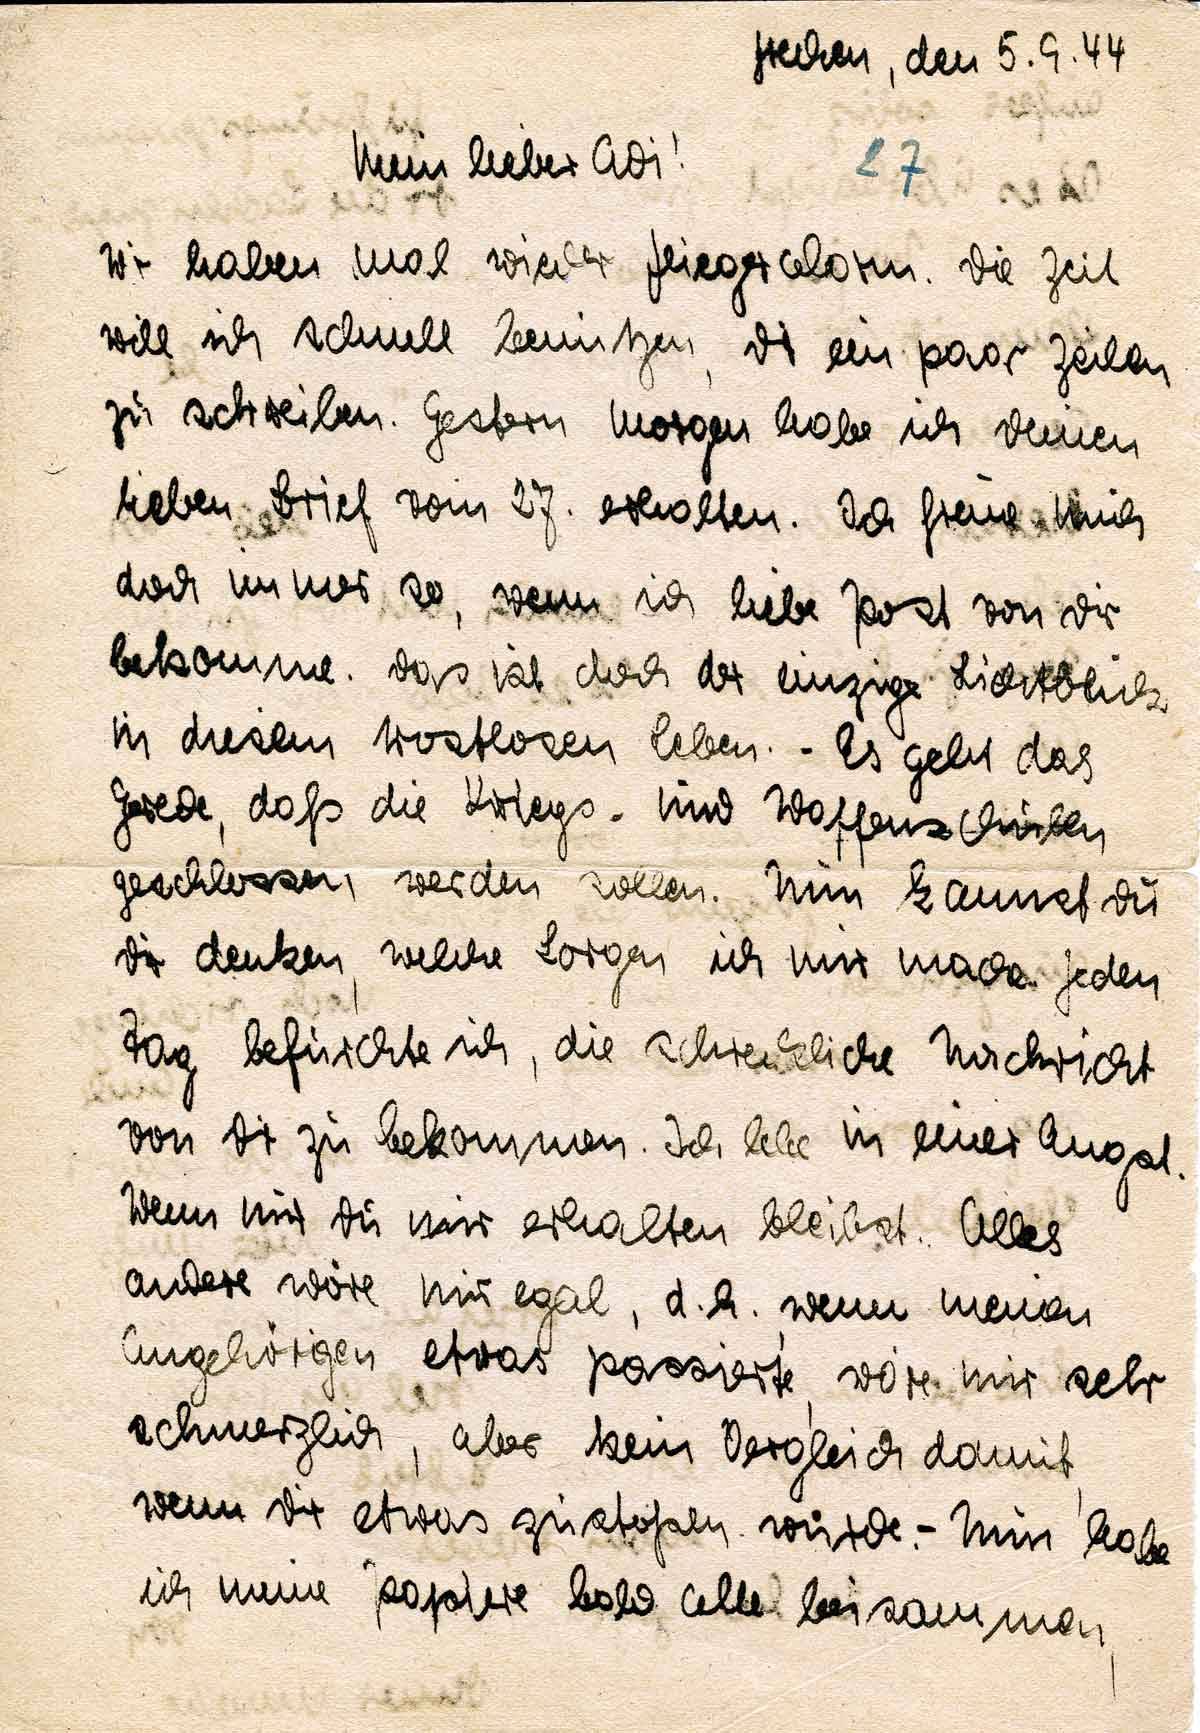 Frechen, den 5.9.44
Mein lieber Adi!
27
Wir haben mal wieder Fliegeralarm. Die Zeit
will ich schnell benützen, Dir ein paar Zeilen
zu schreiben. Gestern Morgen habe ich Deinen
lieben Brief vom 27. erhalten. Ich freue mich
doch immer so, wenn ich liebe Post von Dir
bekomme. Das ist doch der einzige Lichtblick
in diesem trostlosen Leben. - Es geht das
Gerede, daß die Kriegs- und Waffenschulen
geschlossen werden sollen. Nun kannst Du
Dir denken, welche Sorgen ich mir mache. Jeden
Tag befürchte ich, die schreckliche Nachricht
von Dir zu bekommen. Ich lebe in einer Angst.
Wenn nur Du mir erhalten bleibst. Alles
andere wäre mir egal, d.h. wenn meinen
Angehörigen etwas passierte, wäre mir sehr
schmerzlich, aber kein Vergleich damit,
wenn Dir etwas zustoßen würde. - Nun habe
ich meine Papiere bald alle beisammen,